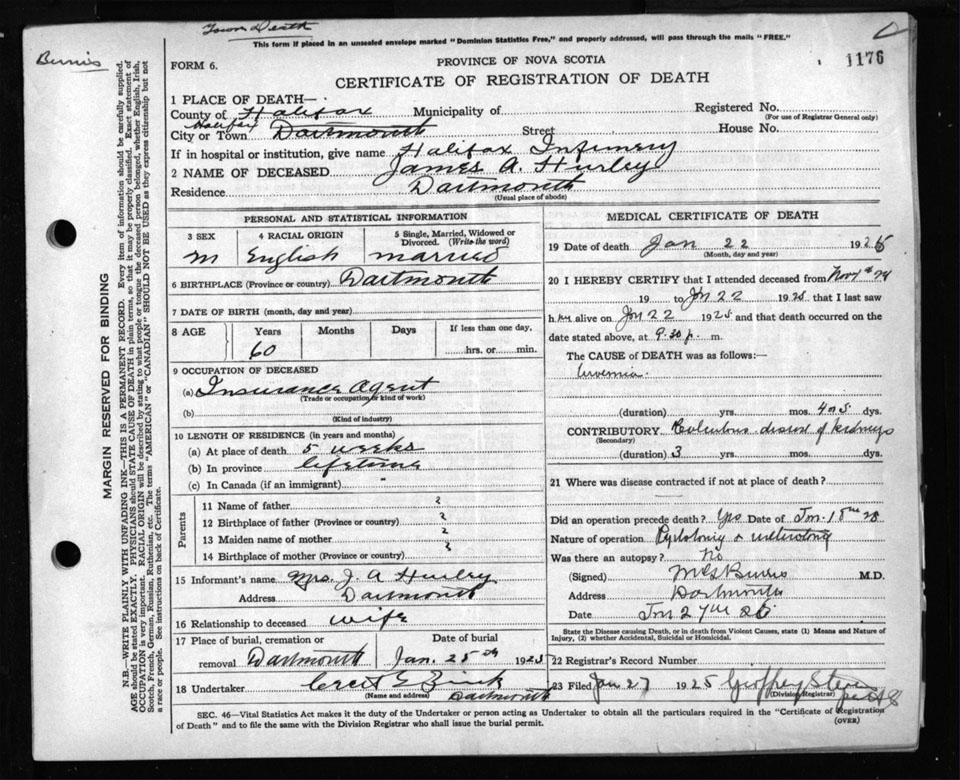 Town Death
This form if placed in an unsealed envelope marked "Dominion Statistics Free," and properly addressed, will pass through the mails "FREE."
Burris
1176
FORM 6.
PROVINCE OF NOVA SCOTIA
CERTIFICATE OF REGISTRATION OF DEATH
MARGIN RESERVED FOR BINDING
N.B.—WRITE PLAINLY WITH UNFADING INK—THIS IS A PERMANENT RECORD. Every item of information should be carefully supplied.
AGE should be stated EXACTLY. PHYSICIANS should STATE CAUSE OF DEATH in plain terms, so that it may be properly classified. Exact statement of
OCCUPATION is very important. RACIAL ORIGIN will be described by stating to what people or tongue the deceased person belonged, whether English, Irish,
Scotch, French, German, Russian, Ruthenian, etc. The terms "AMERICAN" or "CANADIAN" SHOULD NOT BE USED as they express citizenship but not
a race or people. See instructions on back of Certificate.
1 PLACE OF DEATH—
County of Halifax Municipality of Registered No.
(For use of Registrar General only)
Halifax
City or Town Dartmouth Street House No.
If in hospital or institution, give name Halifax Infirmery
2 NAME OF DECEASED James A. Hurley
Residence Dartmouth
(Usual place of abode)
PERSONAL AND STATISTICAL INFORMATION
3 SEX 4 RACIAL ORIGIN 5 Single, Married, Widowed or Divorced. (Write the word)
M English married
6 BIRTHPLACE (Province or country) Dartmouth
7 DATE OF BIRTH (month, day and year)
8 AGE Years Months Days If less than one day,
60 hrs. or min.
9 OCCUPATION OF DECEASED
(a) Insurance Agent
(Trade or occupation or kind of work)
(b)
(Kind of industry)
10 LENGTH OF RESIDENCE (in years and months)
(a) At place of death 5 weeks
(b) In province lifetime
(c) In Canada (if an immigrant)
Parents
11 Name of father ?
12 Birthplace of father (Province or country) ?
13 Maiden name of mother ?
14 Birthplace of mother (Province or country) ?
15 Informant's name Mrs. J. A Hurley
Address Dartmouth
16 Relationship to deceased wife
17 Place of burial, cremation or removal Dartmouth
Date of burial Jan. 25th 1925
18 Undertaker Zink
(Name and address) Dartmouth
MEDICAL CERTIFICATE OF DEATH
19 Date of death Jan 22 1925
(Month, day and year)
20 I HEREBY CERTIFY that I attended deceased from Nov
19 to Jan 22 1925 that I last saw
him alive on Jan 22 1925 and that death occurred on
date stated above, at 9.30 p. m.
The CAUSE of DEATH was as follows:
Uremia
(duration) yrs. mos. 4 or 5 dys.
CONTRIBUTORY Calculous disease of kidneys
(Secondary)
(duration) 3 yrs. mos. dys.
21 Where was disease contracted if not at place of death?
Did an operation precede death? Yes Date of Jan.
Nature of operation
Was there an autopsy? No
(Signed) Burris M.D.
Address Dartmouth
Date Jan 27th 25
State the Disease causing Death, or in death from Violent Causes, state (1) Means and Nature of
Injury, (2) whether Accidental, Suicidal or Homicidal.
22 Registrar's Record Number
23 Filed Jan 27 1925 Geoffrey Stevens
(Division Registrar)
SEC. 46—Vital Statistics Act makes it the duty of the Undertaker or person acting as Undertaker to obtain all the particulars required in the "Certificate of Registration
of Death" and to file the same with the Division Registrar who shall issue the burial permit.
(OVER)